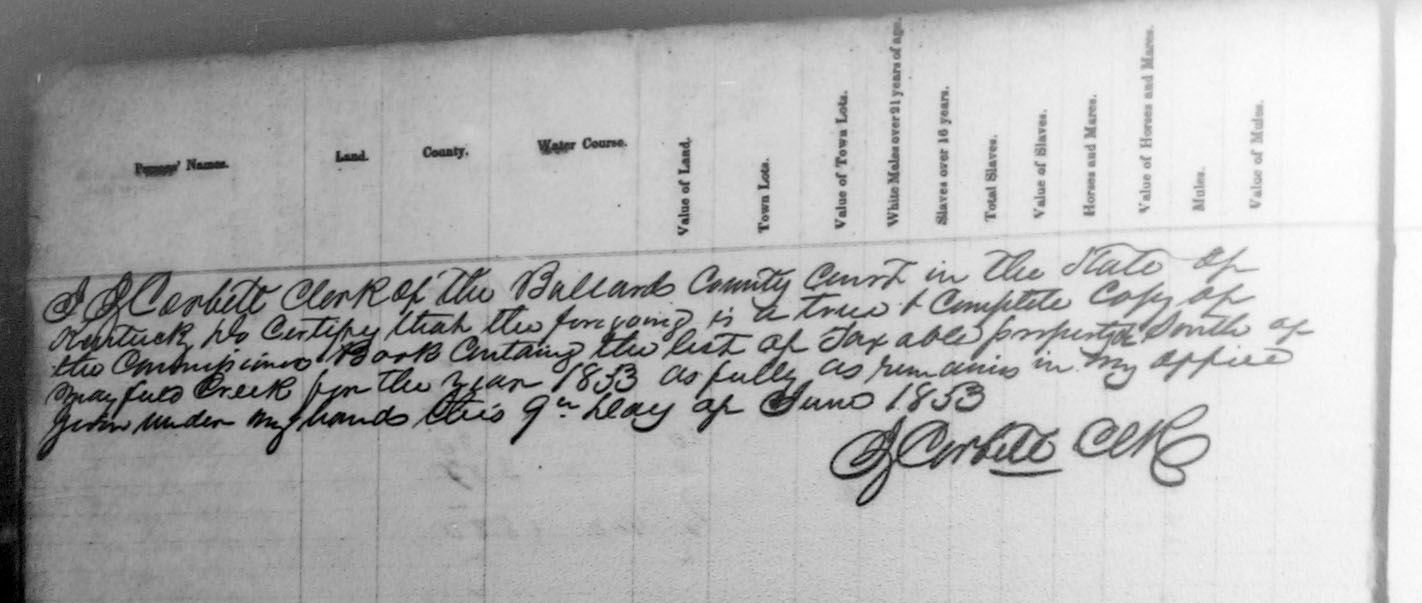 Persons' Names.
Land.
County.
Water Course.
Value of Land.
Town Lots.
Value of Town Lots.
White Males over 21 years of age.
Slaves over 16 years.
Total Slaves.
Value of Slaves.
Horses and Mares.
Value of Horses and Mares.
Mules.
Value of Mules.
I J Corbett Clerk of the Ballard County Court in the State of
Kentucky do Certify that the foregoing is a true & Complete Copy of
the Commissioners Book Containg the list of Taxable property South of
Mayfield Creek for the year 1853 as fully as remains in my office
Given under my hand this 9th Day of June 1853
J Corbett Clk